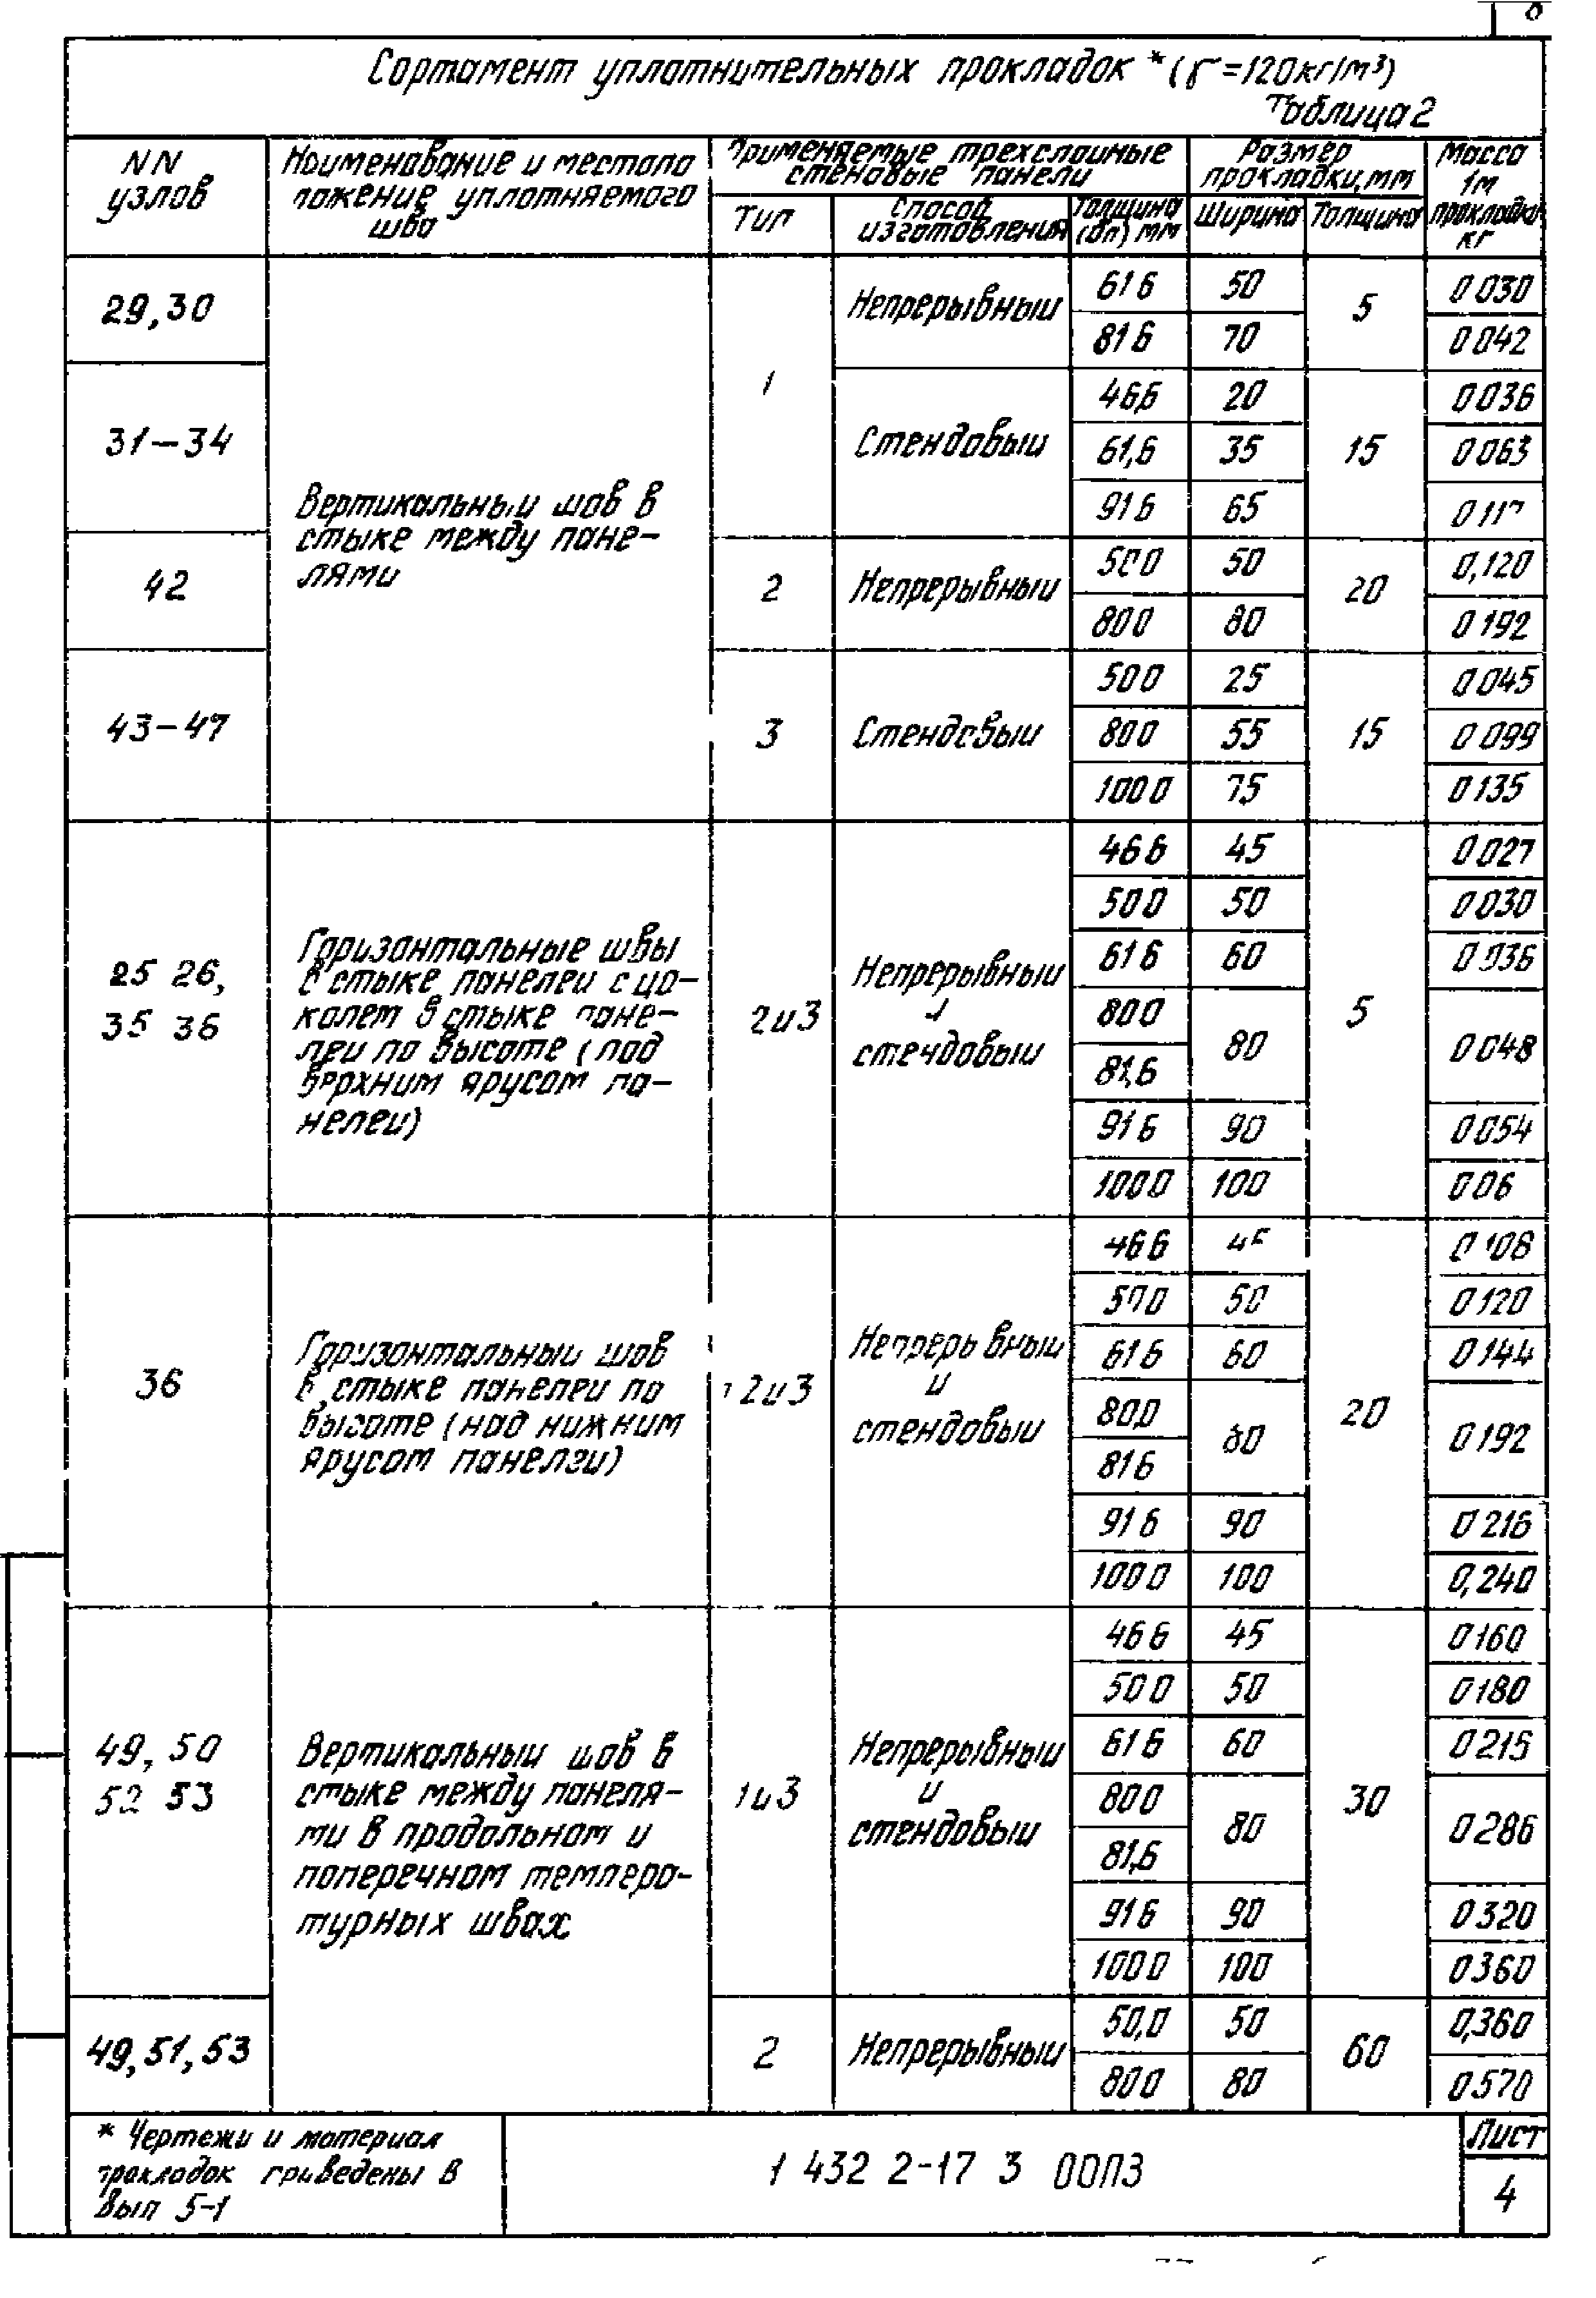 Сортамент уплотнительных прокладок * (γ=120кг/м³)
Таблица 2
NN узлов
Наименование и местопо
ложение уплотняемого
шва
Применяемые трехслойные
стеновые панели
Тип
Способ
изготовления
Толщина
(δп) мм
Размер
прокладки, мм
Ширина
Толщина
Масса
1м
прокладки
кг
29, 30
Вертикальный шов в
стыке между пане-
лями
1
Непрерывный
61 6 50 5 0 030
81 6 70 0 042
31-34
Стендовый
46,6 20 15 0 036
61,6 35 0 063
91 6 65 0 11
42
2
Непрерывный
50 0 50 20 0,120
80 0 80 0 192
43-47
3
Стендовый
50 0 25 15 0 045
80 0 55 0 099
100 0 75 0 135
25 26,
35 36
Горизонтальные швы
в стыке панелей с цо-
колем в стыке пане-
лей по высоте (под
верхним ярусом па-
нелей)
2и3
Непрерывный
и
стендовый
46 6 45 5 0 027
50 0 50 0 030
61 6 60 0 036
80 0 80 0 048
81,6
91 6 90 0 054
100 0 100 0 06
36
Горизонтальный шов
в стыке панелей по
высоте (над нижним
ярусом панелей)
2и3
Непрерывный
и
стендовый
46 6 45 20 0 108
50 0 50 0 120
61 6 60 0 144
80,0 80 0 192
81 6
91 6 90 0 216
100 0 100 0,240
49, 50
52 53
Вертикальный шов в
стыке между панеля-
ми в продольном и
поперечном темпера-
турных швах
1и3
Непрерывный
и
стендовый
46 6 45 30 0 160
50 0 50 0 180
61 6 60 0 215
80 0 80 0 286
81,6
91 6 90 0 320
100 0 100 0 360
49, 51, 53
2
Непрерывный
50,0 50 60 0,360
80 0 80 0 570
* Чертежи и материал
прокладок приведены в
вып 5-1
1 432 2-17 3 00ПЗ
Лист
4